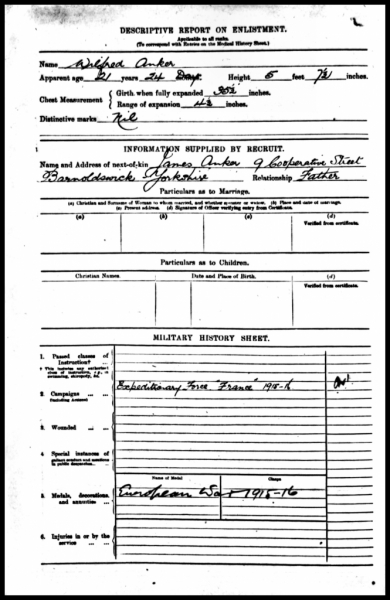 DESCRIPTIVE REPORT ON ENLISTMENT.
Applicable to all ranks.
(To correspond with Entries on the Medical History Sheet.)
Name Wilfred Anker
Apparent age 21 years 24 Days. Height 5 feet 7½ inches.
Chest Measurement { Girth when fully expanded 35½ inches.
Range of expansion 4½ inches.
Distinctive marks Nil
INFORMATION SUPPLIED BY RECRUIT.
Name and Address of next-of-kin James Anker 9 Cooperative Street
Barnoldswick Yorkshire Relationship Father
Particulars as to Marriage.
(a) Christian and Surname of Woman to whom married, and whether spinster or widow. (b) Place and date of marriage.
(c) Present address. (d) Signature of Officer verifying entry from Certificate.
(a) (b) (c) (d)
Verified from certificate.
Particulars as to Children.
Christian Names. Date and Place of Birth. (d)
Verified from certificate.
MILITARY HISTORY SHEET.
1. Passed classes of
Instruction†
2. Campaigns
(including Actions)
Expeditionary Force "France" 1915-16
3. Wounded
4. Special instances of
Name of Medal Clasps
5. Medals, decorations,
and annuities
European War 1915-16
6. Injuries in or by the
service